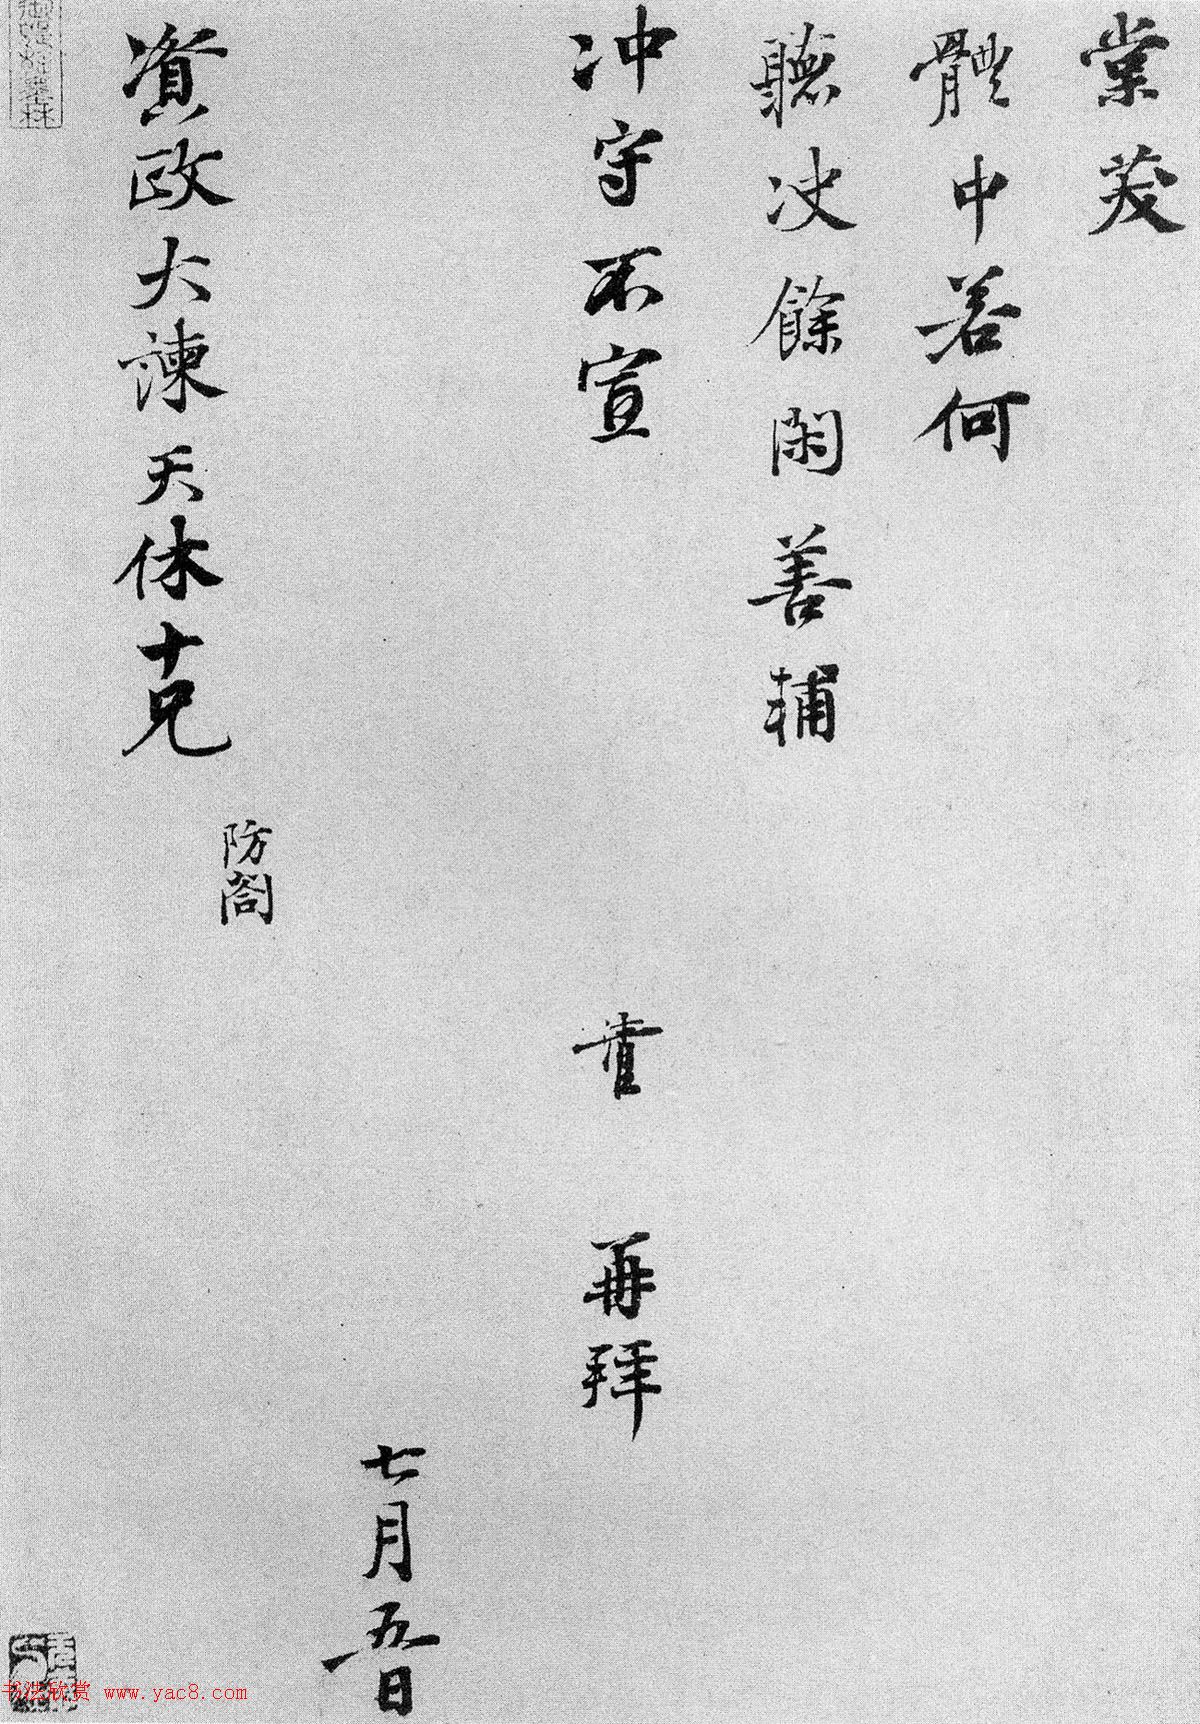 棠茇
體中若何
聽决餘閑善輔
冲守不宣 再拜
七月五日
資政大諫天休十兄 防閤
书法欣赏 www.yac8.com